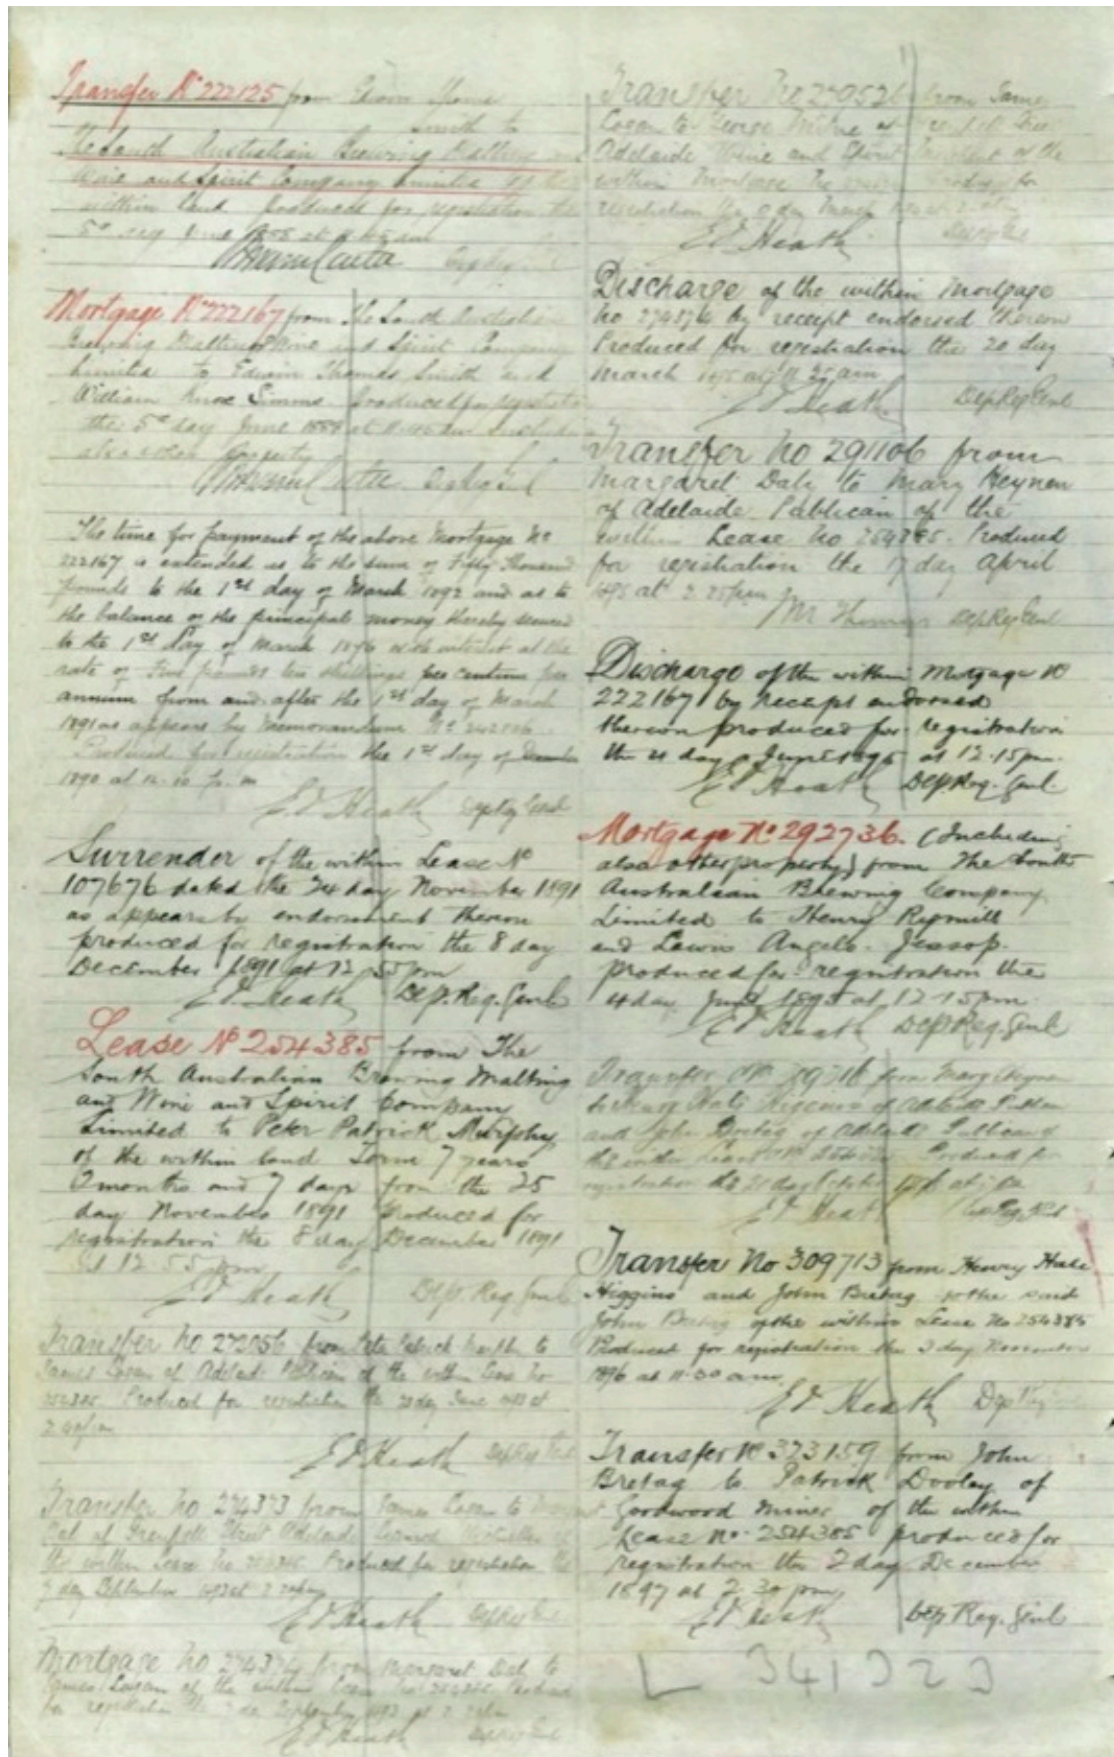 Transfer No 222125 from Edwin Thomas
Smith to
The South Australian Brewing Malting and
Wine and Spirit Company Limited of the
within land Produced for registration the
5th day June at 11.45 am
Mortgage No 222167 from The South Australian
Brewing Malting Wine and Spirit Company
Limited to Edwin Thomas Smith and
William Knox Simms Produced for registration
the 5th day June 1888 at 11.45 am Including
also other property
The time for payment of the above Mortgage No
222167 is extended as to the sum of Fifty Thousand
pounds to the 1st day of March 1892 and as to
the balance of the principal money thereby secured
to the 1st day of March 1896 with interest at the
rate of Five pounds ten shillings per centum per
annum from and after the 1st day of March
1891 as appears by Memorandum No
Produced for registration the 1st day of December
1890 at 12.10 p.m
E D Heath Dep Reg Genl
Surrender of the within Lease No
107676 dated the 24 day November 1891
as appears by endorsement thereon
produced for registration the 8 day
December 1891 at 12 55 pm
E D Heath Dep. Reg. Genl
Lease No 254385 from The
South Australian Brewing Malting
and Wine and Spirit Company
Limited to Peter Patrick Murphy
of the within land Term 7 years
2 months and 7 days from the 25
day November 1891 produced for
registration the 8 day December 1891
at 12 55 pm
E D Heath Dep Reg Genl
Transfer No 272056 from Peter Patrick Murphy to
James Logan of Adelaide Publican of the within Lease No
254385. Produced for registration the 20 day June 1893 at
2.40 pm
E D Heath Dep Reg Genl
Transfer No 274373 from James Logan to Margaret
Daly of Grenfell Street Adelaide Licensed Victualler of
the within Lease No 254385 Produced for registration the
7 day September 1893 at 2.20 pm
E D Heath Dep Reg Genl
Mortgage No 274374 from Margaret Daly to
James Logan of the within Lease No 254385 Produced
for registration the 7 day September 1893 at 2.20 pm
E D Heath Dep Reg Genl
Transfer No 279526 from James
Logan to George Milne of Grenfell Street
Adelaide Wine and Spirit Merchant of the
within Mortgage No 274374 Produced for
registration the day March
E D Heath Dep Reg Genl
Discharge of the within Mortgage
No 274374 by receipt endorsed thereon
Produced for registration the 20 day
March 1895 at 11 25 am
E D Heath Dep Reg Genl
Transfer No 291106 from
Margaret Daly to Mary Heynen
of Adelaide Publican of the
within Lease No 254385. Produced
for registration the 17 day April
1895 at 2 25 pm
Dep Reg Genl
Discharge of the within Mortgage No
222167 by Receipt endorsed
thereon produced for registration
the 4 day June 1895 at 12.15 pm.
E D Heath Dep Reg. Genl.
Mortgage No 292736. (Including
also other property) from The South
Australian Brewing Company
Limited to Henry Rymill
and Lewis Angelo Jessop.
produced for registration the
4 day June 1895 at 12 15 pm.
E D Heath Dep Reg Genl
Transfer No from Mary Heynen
to Henry Hale Higgins of Adelaide Publican
and John Bretag of Adelaide Publican of
the within Lease No 254385 Produced for
registration the day October at pm
E D Heath Dep Reg Genl
Transfer No 309713 from Henry Hale
Higgins and John Bretag to the said
John Bretag of the within Lease No 254385
Produced for registration the 3 day November
1896 at 11.30 am.
E D Heath Dep Reg Genl
Transfer No 323159 from John
Bretag to Patrick Dooley of
Goodwood Miner of the within
Lease No. 254385 produced for
registration the 2 day December
1897 at 2 30 pm
E D Heath Dep Reg. Genl
L 341323